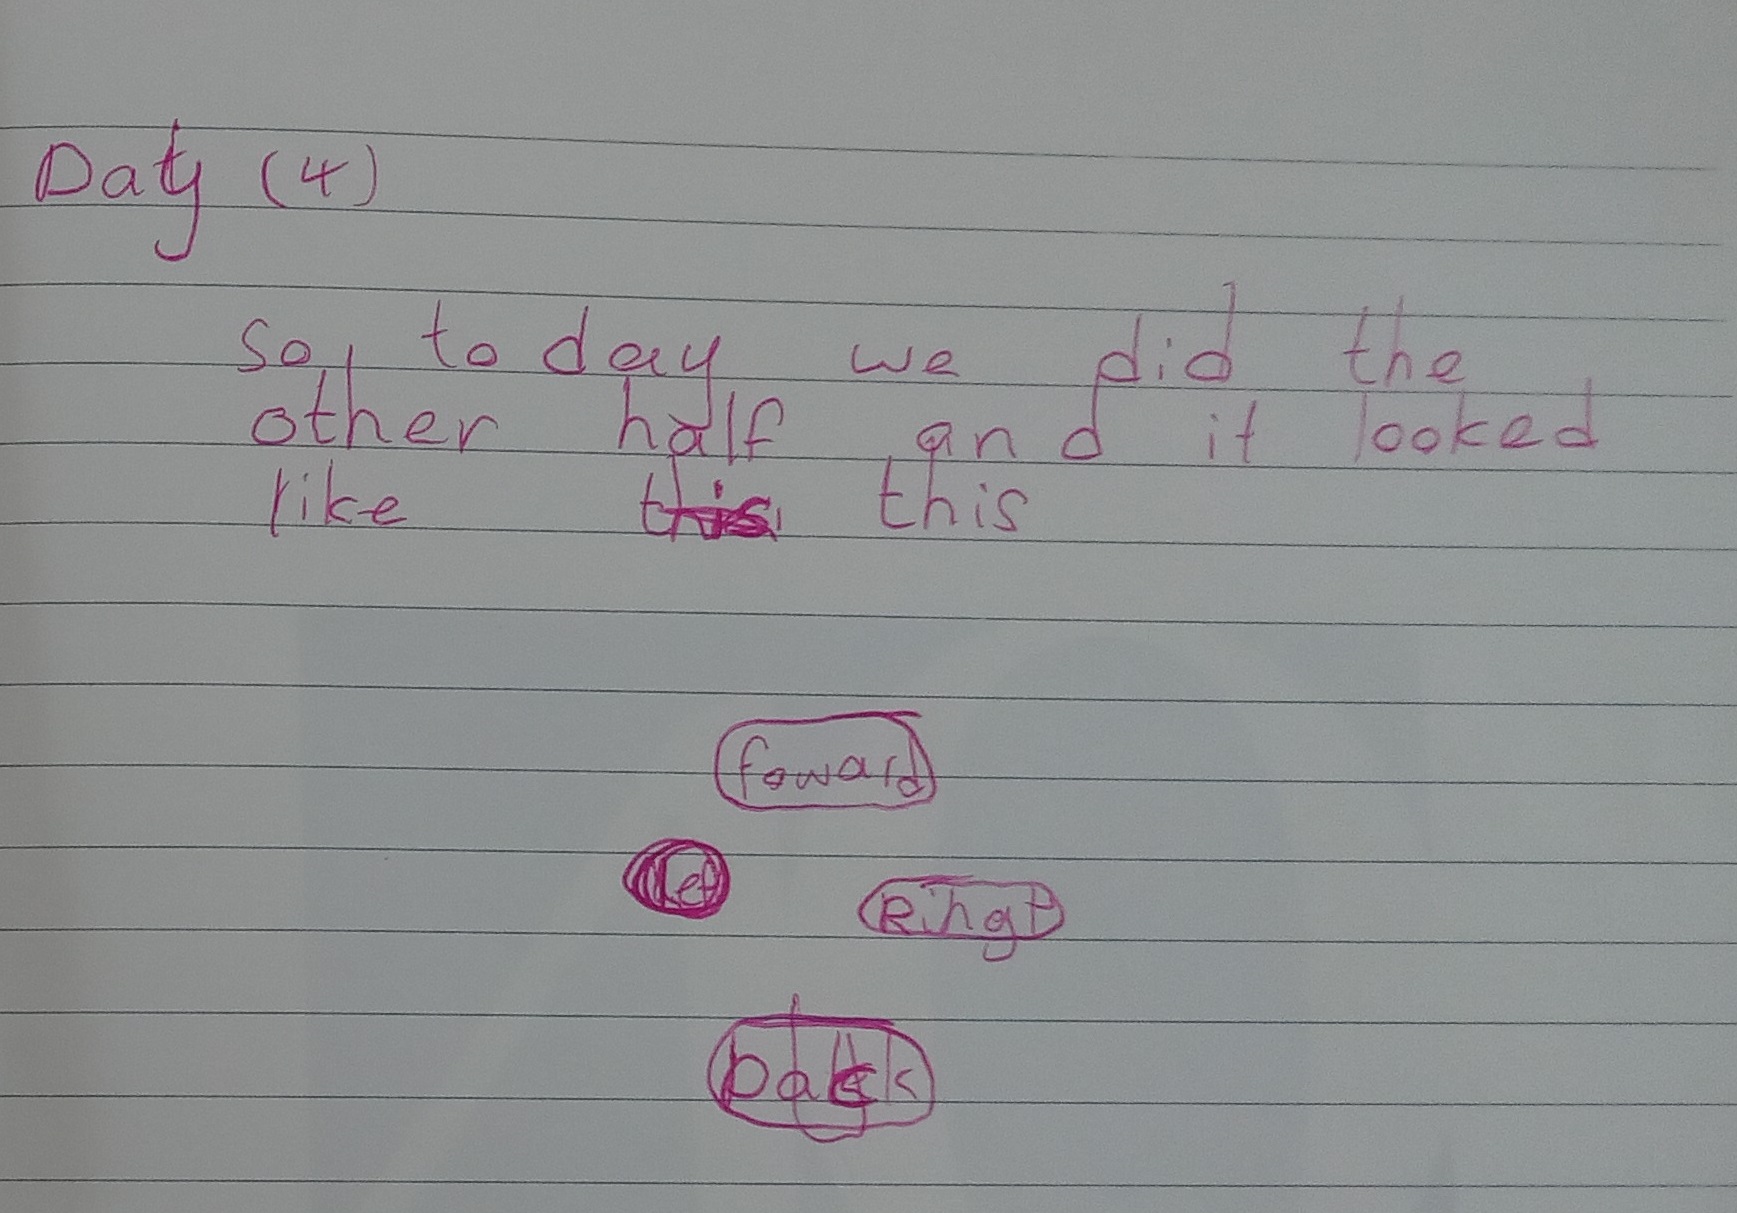 Daty (4)
so, to day we did the
other half and it looked
like this this
foward
Lef
Ringt
back